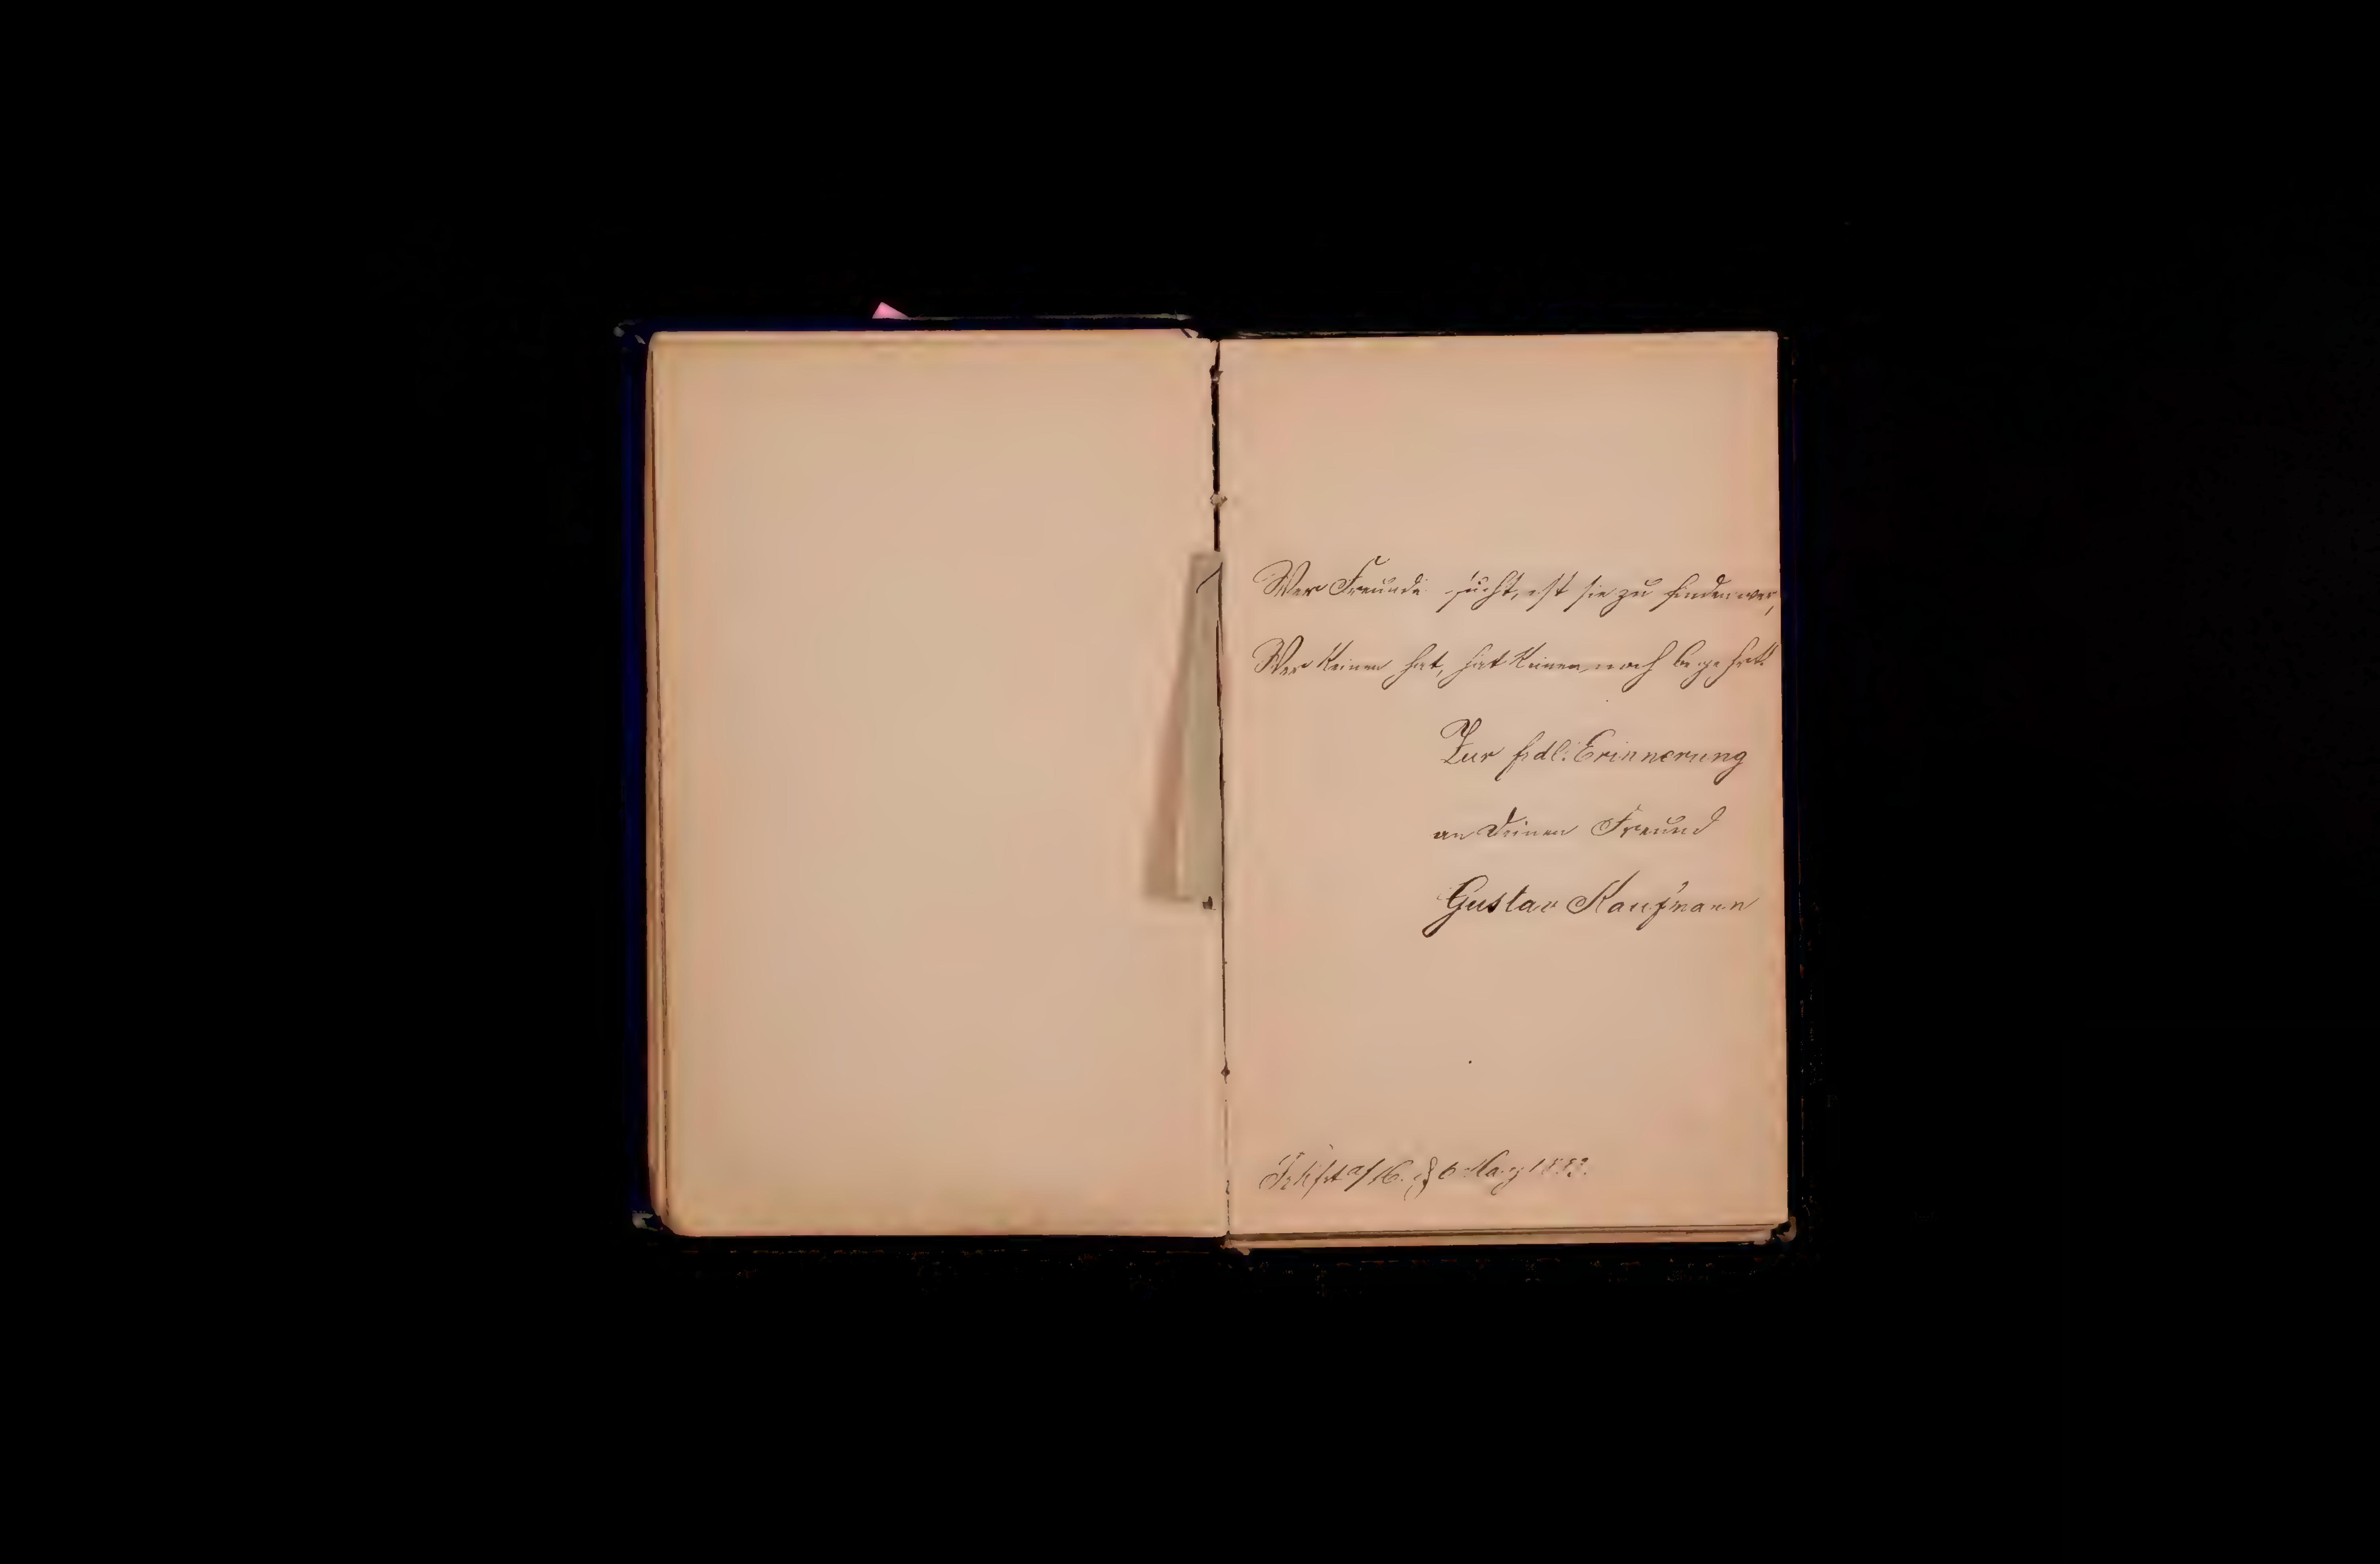 Wer Freunde sucht, ist sie zu finden wert,
Wer keinen hat, hat keinen noch begehrt.
Zur frdl: Erinnerung
an Deinen Freund
Gustav Kaufmann
Frkfrt a/M. 6 März